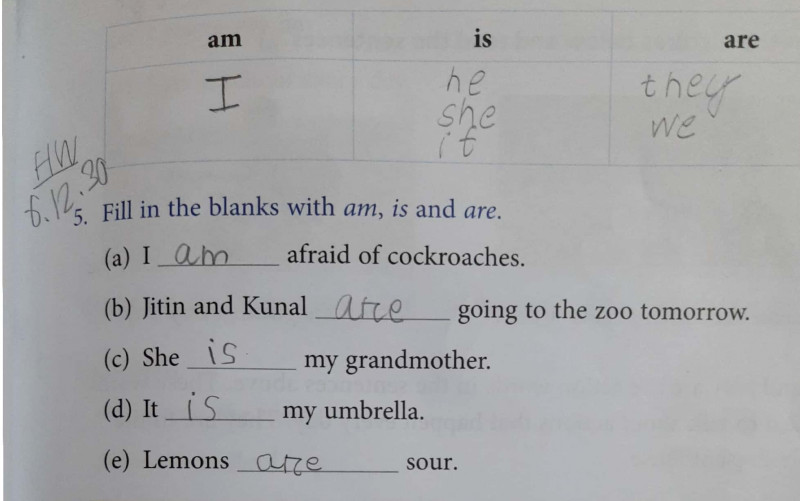 am is are
I he they
she we
it
HW
6.12.30
5. Fill in the blanks with am, is and are.
(a) I am afraid of cockroaches.
(b) Jitin and Kunal are going to the zoo tomorrow.
(c) She is my grandmother.
(d) It is my umbrella.
(e) Lemons are sour.